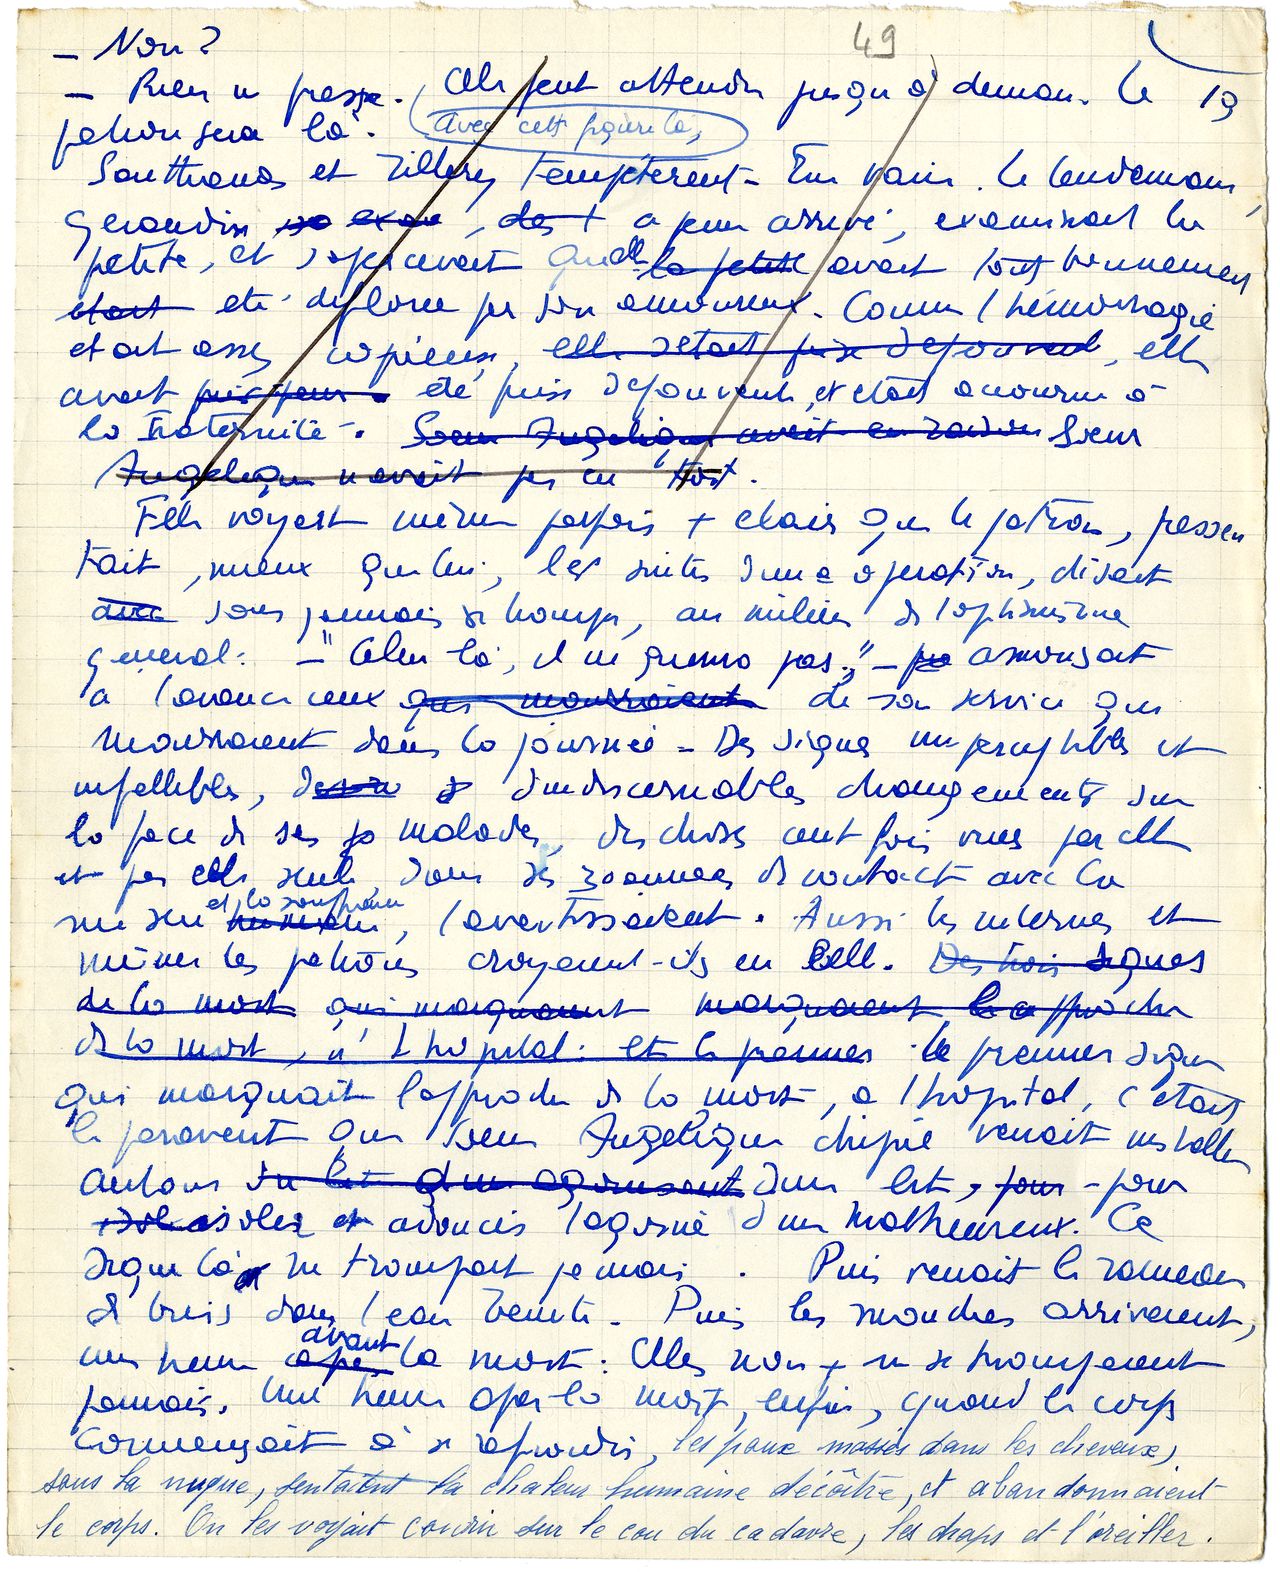 49
— Non ?
— Rien ne presse. Cela peut attendre jusqu'à demain. Le 19
patron sera là. Avec cette piqûre là,
Soutthenas et Tillery tempêtèrent — En vain. Le lendemain,
Geraudin so exam, des + a peine arrivé, examinait la
petite, et s'apercevait qu'elle la petite avait tout bonnement
était été déflorée par son amoureux. Comme l'hémorragie
était assez copieuse, elle s'était prise d'épouvante, elle
avait pris peur été prise d'épouvante, et était accourue à
la Fraternité. Soeur Angélique avait eu raison Soeur
Angélique n'avait pas eu tort.
Elle voyait même parfois + clair que le patron, pressen
tait, mieux que lui, les suites d'une opération, disait
avec sans jamais se tromper, au milieu de l'optimisme
général : — "Celui là, il ne guérira pas." — annonçait
à l'avance ceux qui mourraient de son service qui
mourraient dans la journée — Des signes imperceptibles et
infaillibles, d'indiscernables changements sur
la face de ses malades, des choses cent fois vues par elle
et par elle seule, dans ses années de contact avec la
misère et la souffrance, l'avertissaient. Aussi les internes et
même les patrons croyaient-ils en elle. Des trois signes
de la mort qui marquaient marquaient l'approche
de la mort, à l'hôpital : et le premier le premier signe
qui marquait l'approche de la mort, à l'hôpital, c'était
le paravent que Soeur Angélique venait installer
autour du lit d'un agonisant d'un lit, pour — pour
isoler et adoucir l'agonie d'un malheureux. Ce
signe là ne trompait jamais. Puis venait le rameau
de buis dans l'eau bénite. Puis les mouches arrivaient,
une heure avant la mort : Elles non + ne se trompaient
jamais. Une heure après la mort, enfin, quand le corps
commençait à se refroidir, les poux massés dans les cheveux,
sous la nuque, sentaient la chaleur humaine décroître, et abandonnaient
le corps. On les voyait courir sur le cou du cadavre, les draps et l'oreiller.